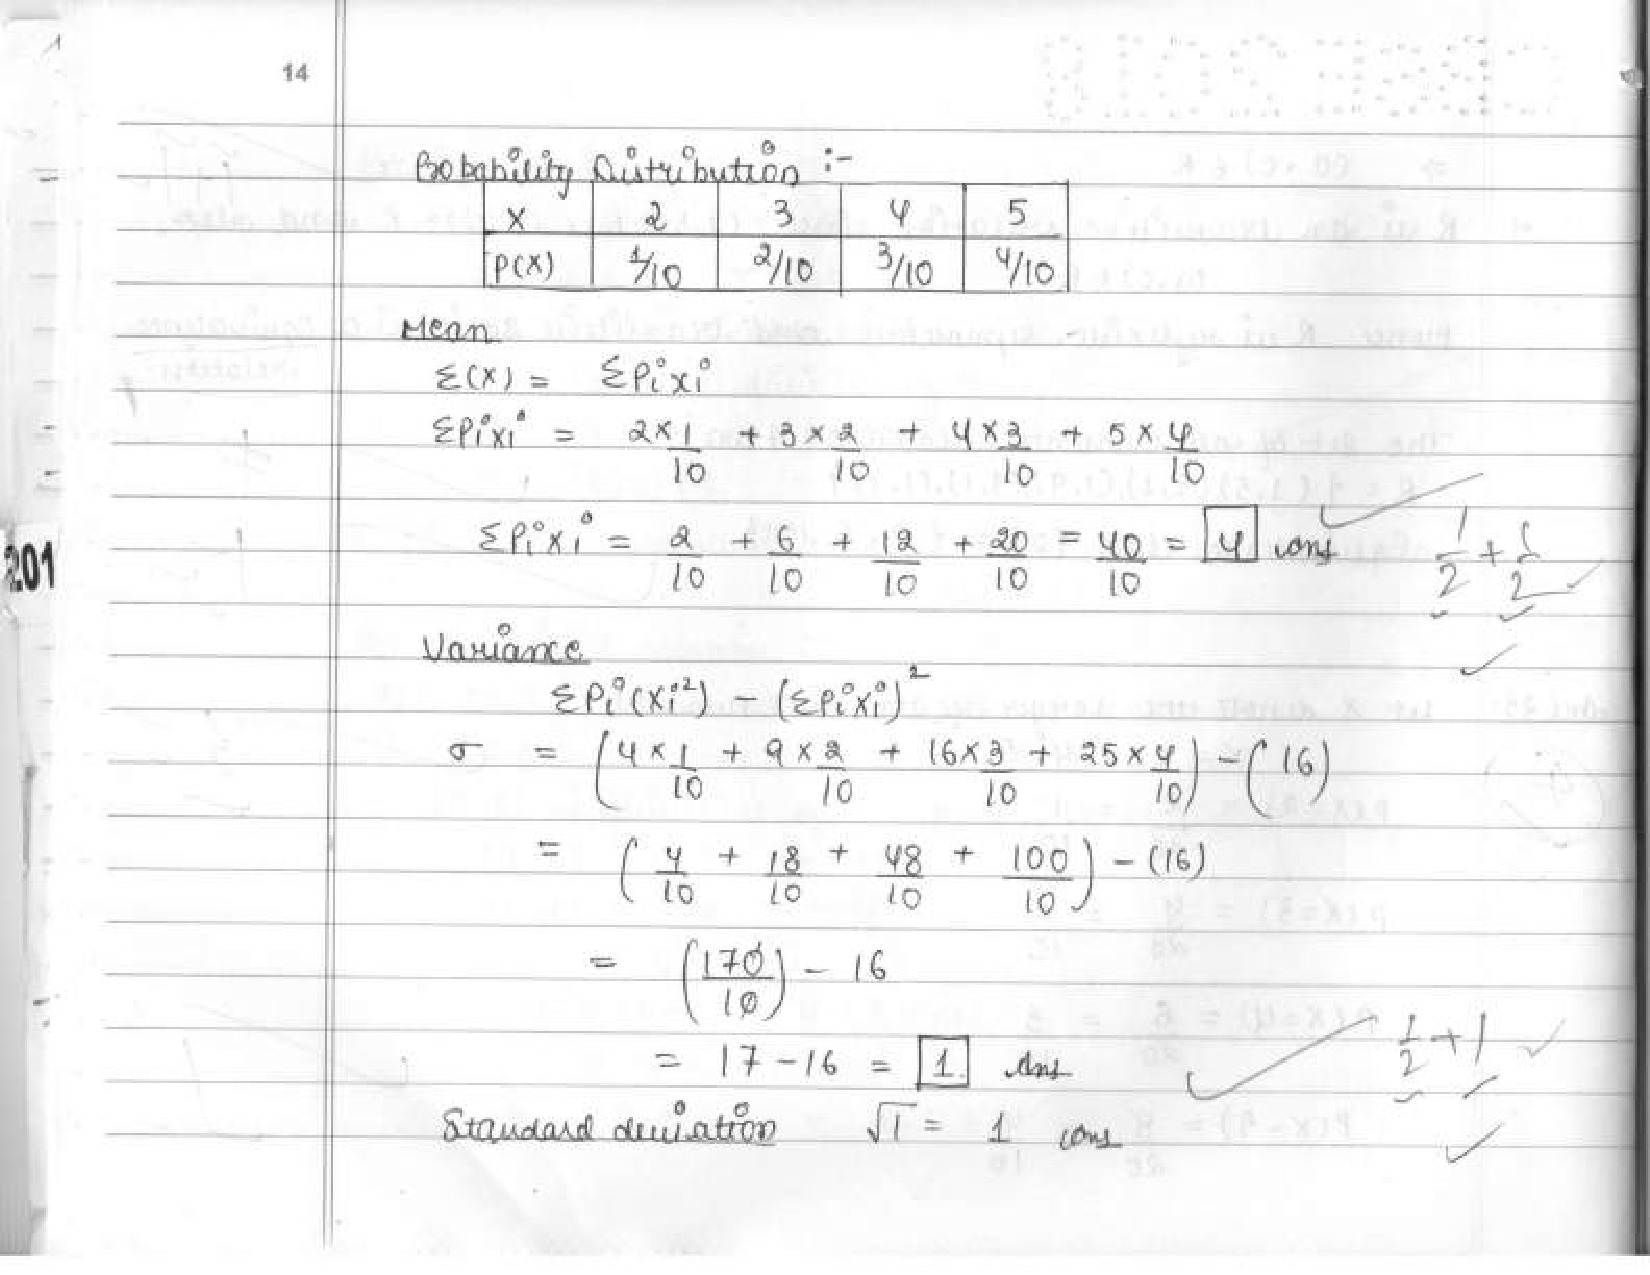 14
Probability Distribution :-
X 2 3 4 5
P(X) 1/10 2/10 3/10 4/10
Mean
Σ(X) = ΣPixi
ΣPixi = 2×1/10 + 3×2/10 + 4×3/10 + 5×4/10
ΣPixi = 2/10 + 6/10 + 12/10 + 20/10 = 40/10 = 4 ans
1/2 + 1/2
201
Variance
ΣPi(Xi²) - (ΣPixi)²
σ = (4×1/10 + 9×2/10 + 16×3/10 + 25×4/10) - (16)
= (4/10 + 18/10 + 48/10 + 100/10) - (16)
= (170/10) - 16
= 17 - 16 = 1 Ans
1/2 + 1
Standard deviation √1 = 1 ans